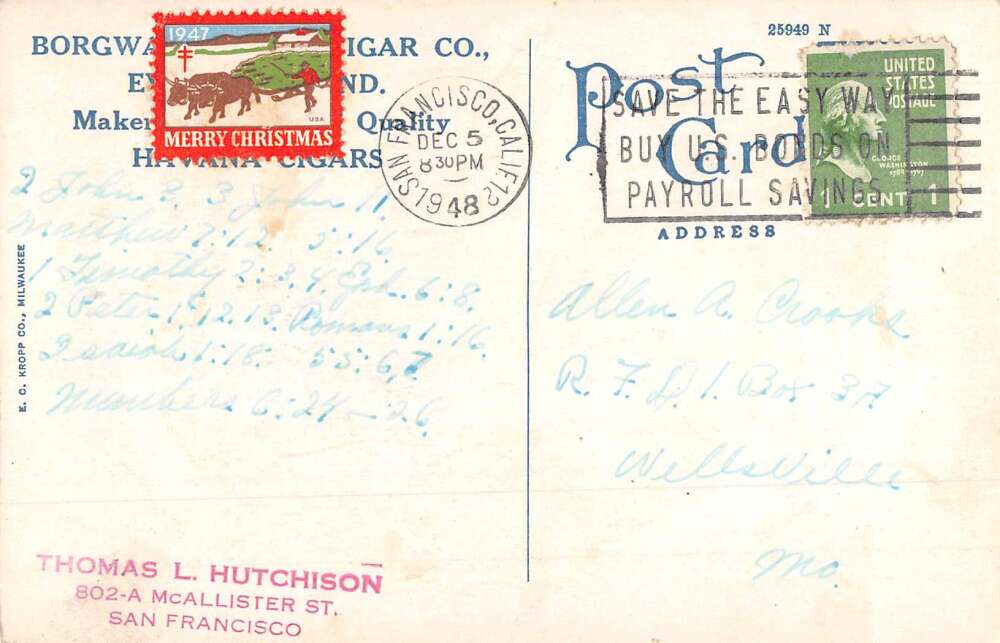 BORGWA IGAR CO.,
EV ND.
Maker Quality
HAVANA CIGARS
1947
USA
MERRY CHRISTMAS
SAN FRANCISCO, CALIF. 12
DEC 5
8 30 PM
1948
25949 N
Post
Card
SAVE THE EASY WAY
BUY U.S. BONDS ON
PAYROLL SAVINGS
UNITED
STATES
POSTAGE
GEORGE
WASHINGTON
1789-1797
1 CENT 1
ADDRESS
2 John 3. 3 John 11.
Matthew 7:12. 5:16.
1 Timothy 2:3,4. Eph. 6:8.
2 Peter 1:12.13. Romans 1:16.
Isaiah 1:18. 55:6,7.
Numbers 6:24-26.
E. C. KROPP CO., MILWAUKEE
Allen A. Crooks
R. F. D. 1. Box 37
Wellsville
Mo.
THOMAS L. HUTCHISON
802-A McALLISTER ST.
SAN FRANCISCO